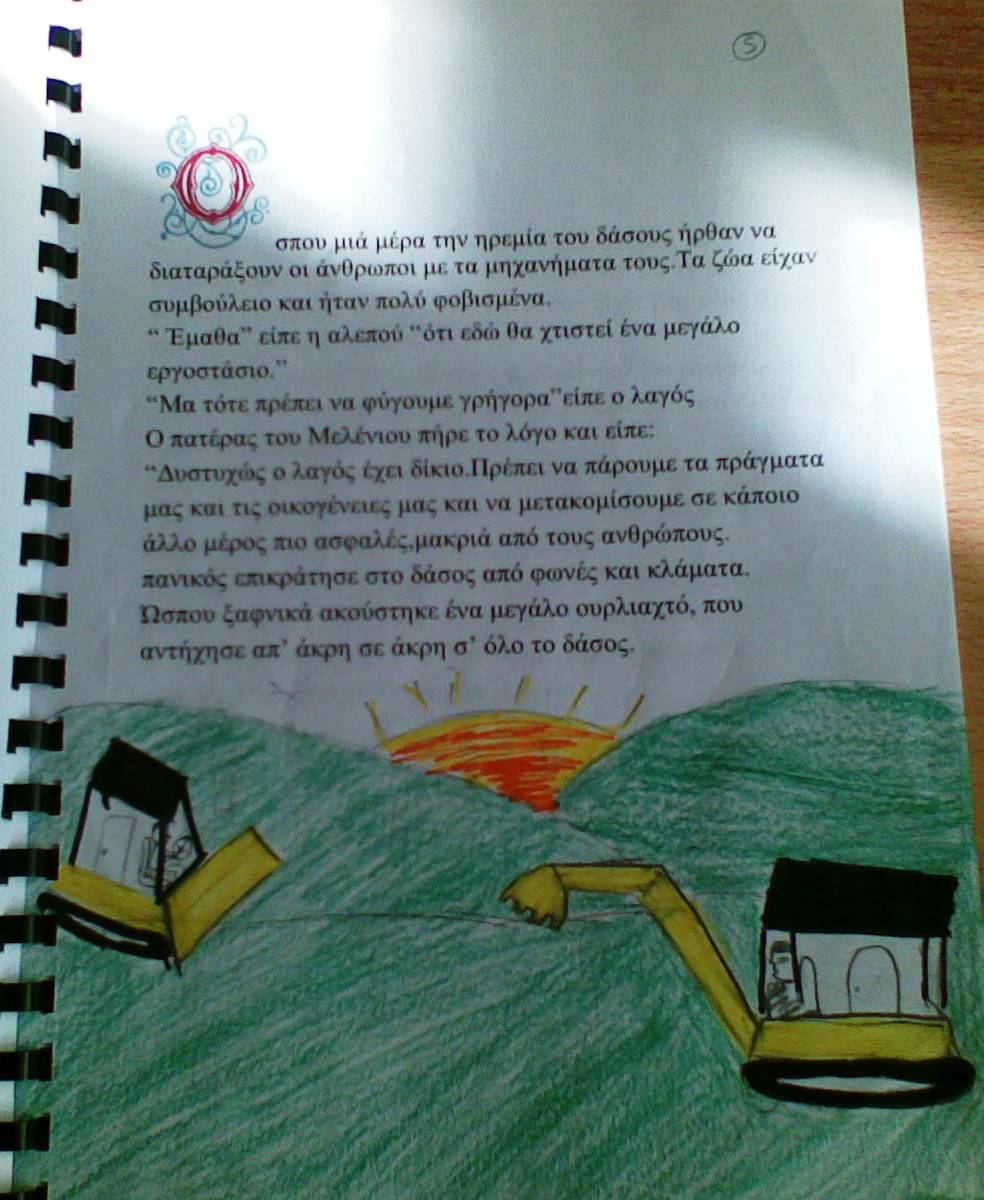 5
Οσπου μιά μέρα την ηρεμία του δάσους ήρθαν να
διαταράξουν οι άνθρωποι με τα μηχανήματα τους.Τα ζώα είχαν
συμβούλειο και ήταν πολύ φοβισμένα.
“ Έμαθα” είπε η αλεπού “ότι εδώ θα χτιστεί ένα μεγάλο
εργοστάσιο.”
“Μα τότε πρέπει να φύγουμε γρήγορα”είπε ο λαγός
Ο πατέρας του Μελένιου πήρε το λόγο και είπε:
“Δυστυχώς ο λαγός έχει δίκιο.Πρέπει να πάρουμε τα πράγματα
μας και τις οικογένειες μας και να μετακομίσουμε σε κάποιο
άλλο μέρος πιο ασφαλές,μακριά από τους ανθρώπους.
πανικός επικράτησε στο δάσος από φωνές και κλάματα.
Ώσπου ξαφνικά ακούστηκε ένα μεγάλο ουρλιαχτό, που
αντήχησε απ’ άκρη σε άκρη σ’ όλο το δάσος.